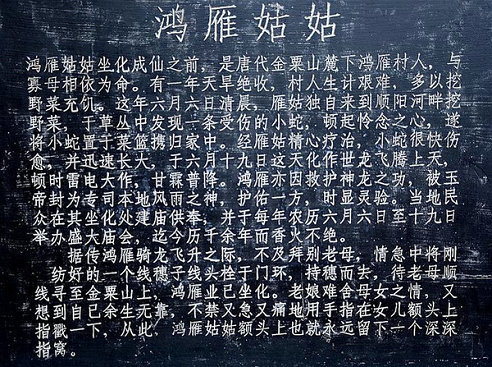 鸿雁姑姑
鸿雁姑姑坐化成仙之前，是唐代金粟山麓下鸿雁村人，与
寡母相依为命。有一年天旱绝收，村人生计艰难，多以挖
野菜充饥。这年六月六日清晨，雁姑独自来到顺阳河畔挖
野菜，于草丛中发现一条受伤的小蛇，顿起怜念之心，遂
将小蛇置于菜篮携归家中。经雁姑精心疗治，小蛇很快伤
愈，并迅速长大，于六月十九日这天化作世龙飞腾上天，
顿时雷电大作，甘霖普降。鸿雁亦因救护神龙之功，被玉
帝封为专司本地风雨之神，护佑一方，时显灵验。当地民
众在其坐化处建庙供奉，并于每年农历六月六日至十九日
举办盛大庙会，迄今历千余年而香火不绝。
据传鸿雁骑龙飞升之际，不及拜别老母，情急中将刚
纺好的一个线穗子线头栓于门环，持穗而去，待老母顺
线寻至金粟山上，鸿雁业已坐化。老娘难舍母女之情，又
想到自己余生无靠，不禁又急又痛地用手指在女儿额头上
指戳一下，从此，鸿雁姑姑额头上也就永远留下一个深深
指窝。